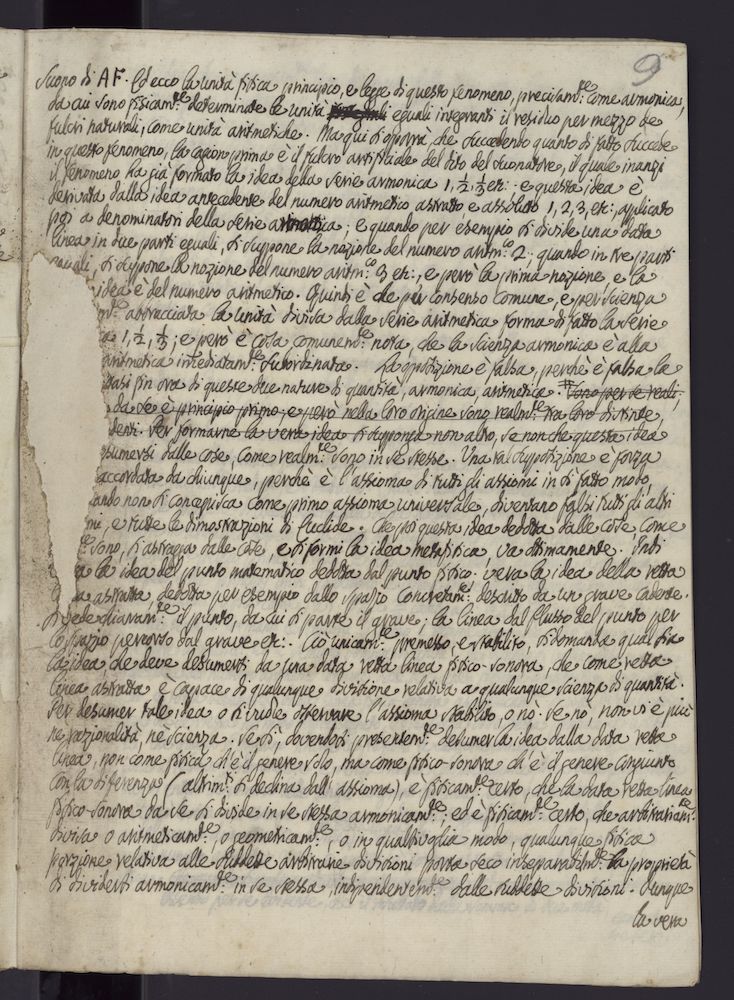 9
Scopo di AF. Ed ecco la unità fisica principio, e legge di questo fenomeno, precisam.te come armonica,
da cui sono fisicam.te determinate le unità eguali integranti il residuo per mezzo de
fulcri naturali, come unità aritmetiche. Ma qui si opporrà che succedendo quanto di fatto succede
in questo fenomeno, la cagion prima è il fulcro artifiziale del dito del suonatore, il quale inanzi
il fenomeno ha già formato la idea della serie armonica 1, ½, ⅓ etc: e questa idea è
derivata dalla idea antecedente del numero aritmetico astratto, e assoluto 1, 2, 3, etc: applicato
poi a denominatori della serie armonica; e quando per esempio si divide una data
linea in due parti eguali, si suppone la nozione del numero aritm.o 2; quando in tre parti
eguali, si suppone la nozione del numero aritm.o 3 etc:, e però la prima nozione, e la
idea è del numero aritmetico. Quindi è che per consenso comune, e per scienza
abbracciata la unità divisa dalla serie aritmetica forma di fatto la serie
a 1, ½, ⅓; e però è cosa comunem.te nota, che la scienza armonica è alla
aritmetica imediatam.te subordinata. La opposizione è falsa, perchè è falsa la
tasi fin ora di queste due nature di quantità, armonica, aritmetica. Sono per se reali,
da se è principio primo, e però nella loro origine sono realm.te tra loro distinte,
denti. Per formarne la vera idea si supponga non altro, se non che questa idea
desumersi dalle cose, come realm.te sono in se stesse. Una tal supposizione è forza
accordata da chiunque, perchè è l'assioma di tutti gli assiomi in sì fatto modo,
ando non si concepisca come primo assioma universale, diventano falsi tutti gli altri
mi, e tutte le dimostrazioni di Euclide. Che poi questa idea dedotta dalle cose come
sono, si astragga dalle cose, e si formi la idea metafisica, va ottimamente. Indi
a la idea del punto matematico dedotta dal punto fisico. vera la idea della retta
a astratta, dedotta per esempio dallo spazio concretam.te descritto da un grave cadente.
Si vede chiaram.te il punto, da cui si parte il grave; la linea dal flusso del punto per
lo spazio percorso dal grave etc:. Ciò unicam.te premesso, e stabilito, si domanda qual sia
la idea che deve desumersi da una data retta linea fisico-sonora, che come retta
linea astratta è capace di qualunque divisione relativa a qualunque scienza di quantità.
Per desumer tale idea o si vuole osservare l'assioma stabilito, o nò. Se nò, non vi è più
ne razionalità, ne scienza. Se sì, dovendosi presentem.te desumer la idea dalla data retta
linea, non come fisica ch'è il genere solo, ma come fisico-sonora ch'è il genere congiunto
con la differenza (altrim.ti si declina dall'assioma), è fisicam.te certo, che la data retta linea
fisico-sonora da se si divide in se stessa armonicam.te; ed è fisicam.te certo, che arbitrariam.te
divisa o aritmeticam.te, o geometricam.te, o in qualsivoglia modo, qualunque fisica
porzione relativa alle suddette arbitrarie divisioni porta seco inseparabilm.te la proprietà
di dividersi armonicam.te in se stessa, indipendentem.te dalle suddette divisioni. Dunque
la vera